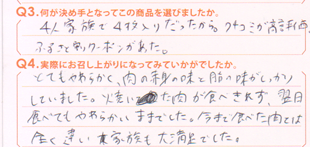 Q3.何が決め手となってこの商品を選びましたか。
4人家族で4枚入りだったから。クチコミが高評価。
ふるさと割クーポンがあった。
Q4.実際にお召し上がりになってみていかがでしたか。
とてもやわらかく、肉の赤身の味と脂の味がしっかり
していました。焼いた肉が食べきれず、翌日
食べてもやわらかいままでした。今まで食べた肉とは
全く違い家族も大満足でした。